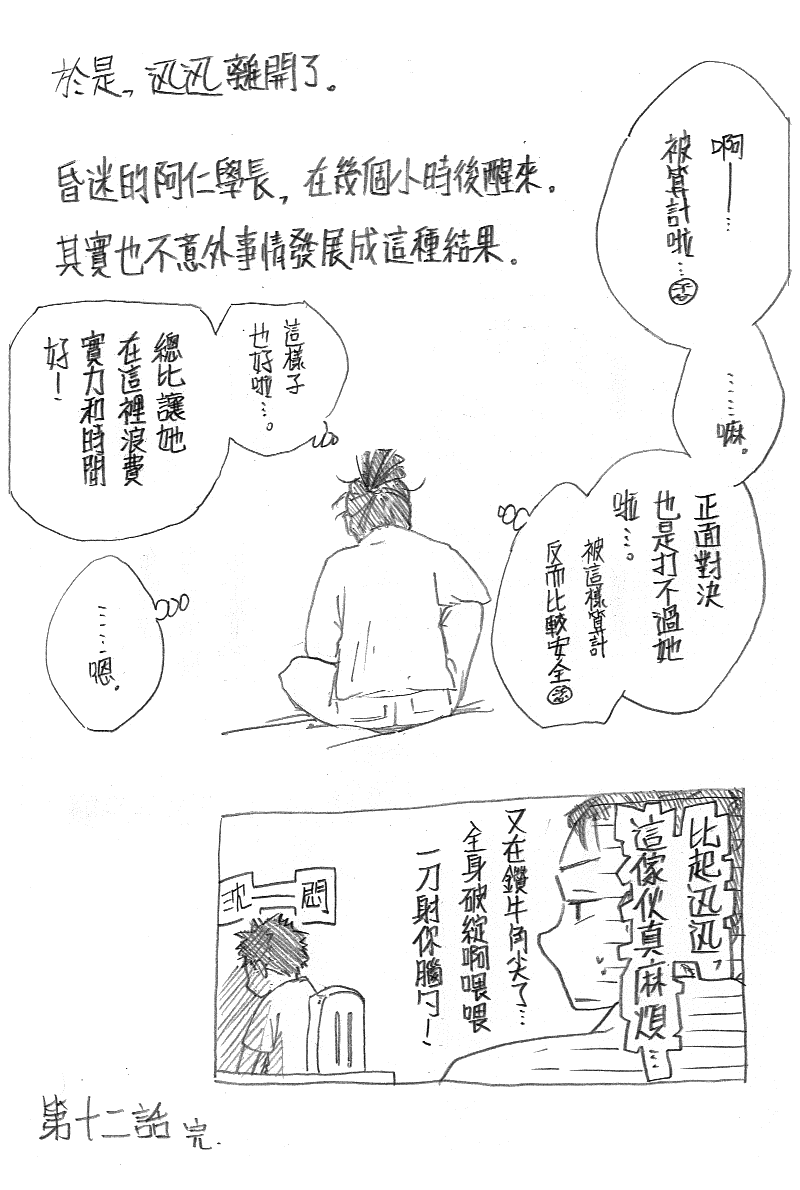 於是，迅迅離開了。
昏迷的阿仁學長，在幾個小時後醒來。
其實也不意外事情發展成這種結果。
啊——…
被算計啦…
……嘛。
正面對決
也是打不過她
啦…。
被這樣算計
反而比較安全
這樣子
也好啦…。
總比讓她
在這裡浪費
實力和時間
好！
……嗯。
比起迅迅，
這傢伙真麻煩…
又在鑽牛角尖了…
全身破綻啊喂喂
一刀射你腦勺！
沈悶
第十二話 完.